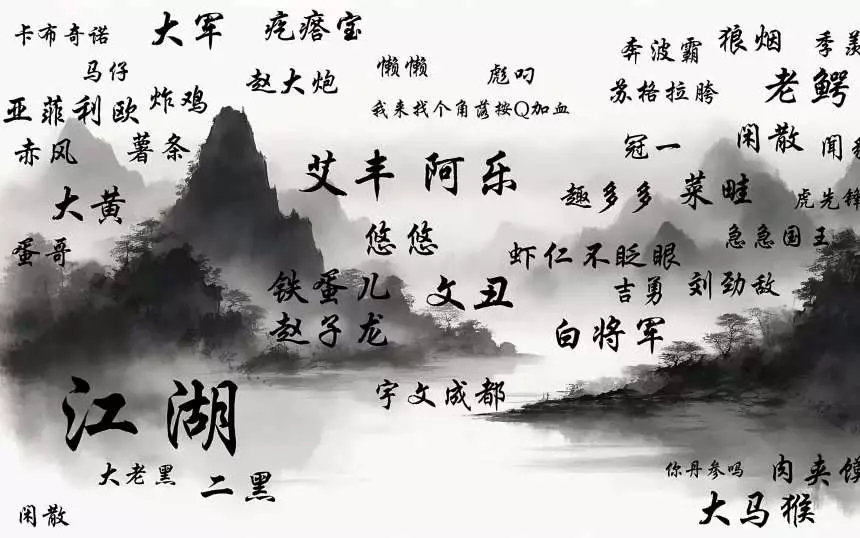 卡布奇诺
大军
疙瘩宝
奔波霸
狼烟
季羡
马仔
赵大炮
懒懒
彪叼
苏格拉胯
老鳄
亚菲利欧
炸鸡
我来找个角落按Q加血
赤风
薯条
艾丰
阿乐
冠一
闲散
闻
大黄
趣多多
菜畦
虎先锋
蛋哥
悠悠
虾仁不眨眼
急急国王
铁蛋儿
文丑
吉勇
刘劲敌
赵子龙
白将军
江湖
宇文成都
大老黑
二黑
你丹参吗
肉夹馍
大马猴
闲散